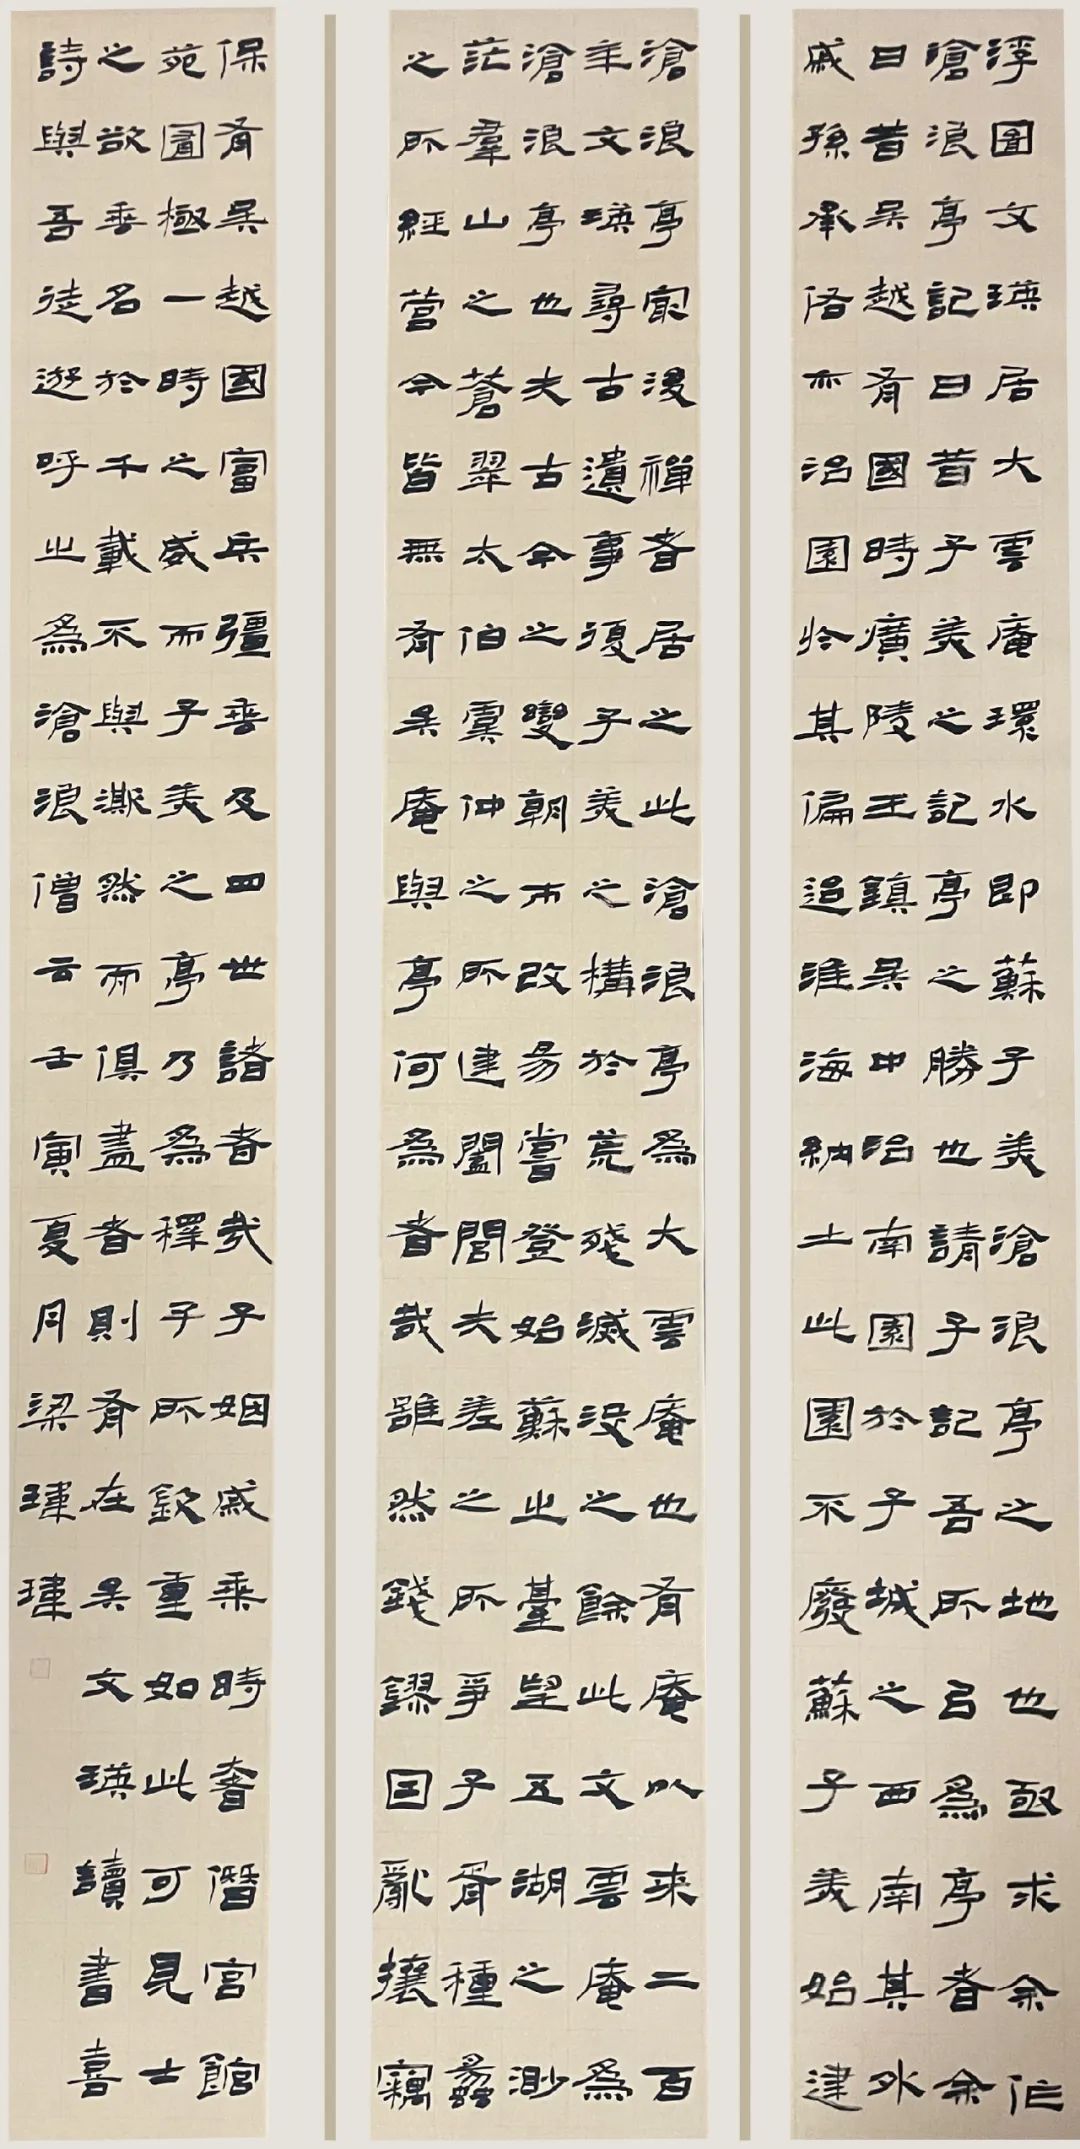 浮圖文瑛居大雲庵環水即蘇子美滄浪亭之地也亟求余作
滄浪亭記曰昔子美之記記亭之勝也請子記吾所以為亭者余
曰昔吳越有國時廣陵王鎮吳中治南園於子城之西南其外
戚孫承佑亦治園於其偏迨淮海納土此園不廢蘇子美始建
滄浪亭最後禪者居之此滄浪亭為大雲庵也有庵以來二百
年文瑛尋古遺事復子美之構於荒殘滅沒之餘此文雲庵為
滄浪亭也夫古今之變朝市改易嘗登始蘇之臺望五湖之渺
茫羣山之蒼翠太伯虞仲之所建闔閭夫差之所爭子胥種蠡
之所經營今皆無有吳庵與亭何為者哉雖然錢鏐因亂攘竊
保有吳越國富兵彊垂及四世諸者哉子姻戚乘時奢僭宮館
苑圖極一時之盛而子美之亭乃為釋子所欽重如此可見士
之欲垂名於千載不與澌然而俱盡者則有在吳文瑛讀書喜
詩與吾徒遊呼之為滄浪僧云壬寅夏月梁瑋瑋